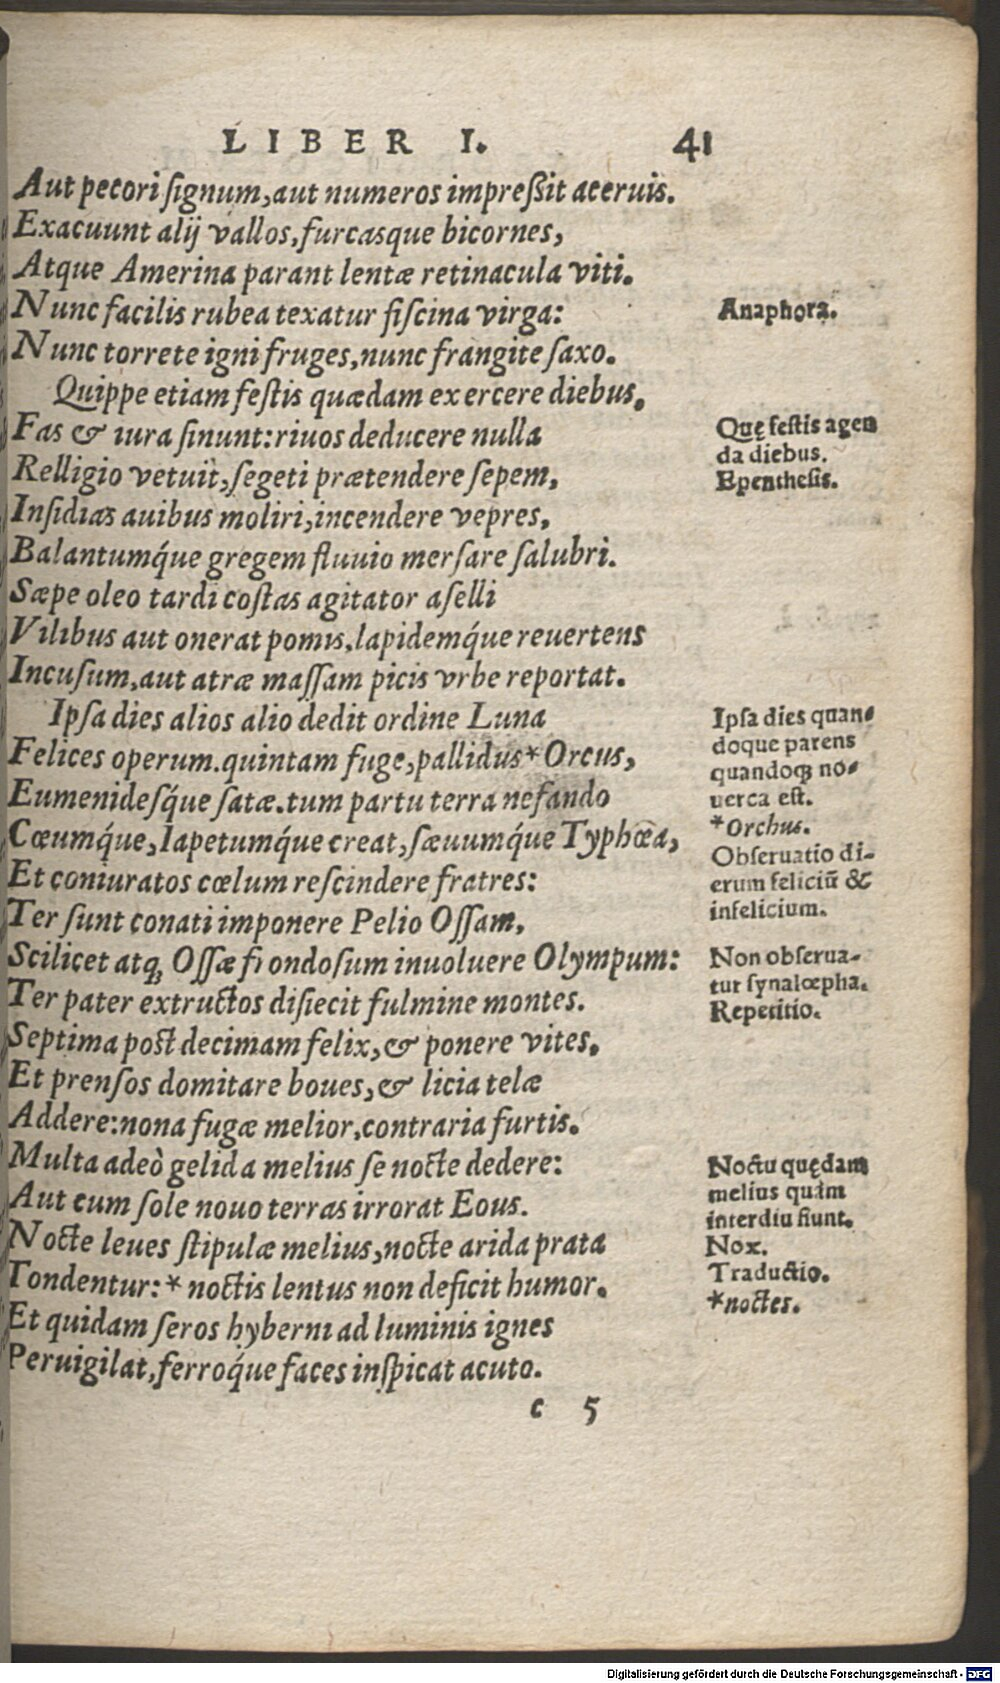 LIBER I. 41
Aut pecori ſignum,aut numeros impreßit aceruis.
Exacuunt alij vallos,furcasque bicornes,
Atque Amerina parant lentæ retinacula viti.
Nunc facilis rubea texatur fiſcina virga:
Anaphora.
Nunc torrete igni fruges,nunc frangite ſaxo.
Quippe etiam feſtis quædam exercere diebus,
Fas & iura ſinunt:riuos deducere nulla
Quę feſtis agen
da diebus.
Relligio vetuit,ſegeti prætendere ſepem,
Epentheſis.
Inſidias auibus moliri,incendere vepres,
Balantumq́ue gregem fluuio merſare ſalubri.
Sæpe oleo tardi coſtas agitator aſelli
Vilibus aut onerat pomis,lapidemq́ue reuertens
Incuſum,aut atræ maſſam picis vrbe reportat.
Ipſa dies alios alio dedit ordine Luna
Ipſa dies quan-
doque parens
Felices operum.quintam fuge,pallidus*Orcus,
quandoq; no-
uerca eſt.
Eumenidesq́ue ſatæ.tum partu terra nefando
*Orchus.
Cœumq́ue,Iapetumq́ue creat,ſæuumq́ue Typhœa,
Obſeruatio di-
Et coniuratos cœlum reſcindere fratres:
erum feliciū &
infelicium.
Ter ſunt conati imponere Pelio Oſſam,
Scilicet atq; Oſſæ frondoſum inuoluere Olympum:
Non obſerua-
tur ſynalœpha.
Ter pater extructos diſiecit fulmine montes.
Repetitio.
Septima poſt decimam felix,& ponere vites,
Et prenſos domitare boues,& licia telæ
Addere:nona fugæ melior,contraria furtis.
Multa adeò gelida melius ſe nocte dedere:
Noctu quędam
melius quàm
Aut cum ſole nouo terras irrorat Eous.
interdiu fiunt.
Nocte leues ſtipulæ melius,nocte arida prata
Nox.
Traductio.
Tondentur:* noctis lentus non deficit humor.
*noctes.
Et quidam ſeros hyberni ad luminis ignes
Peruigilat,ferroq́ue faces inſpicat acuto.
c 5
Digitalisierung gefördert durch die Deutsche Forschungsgemeinschaft - DFG